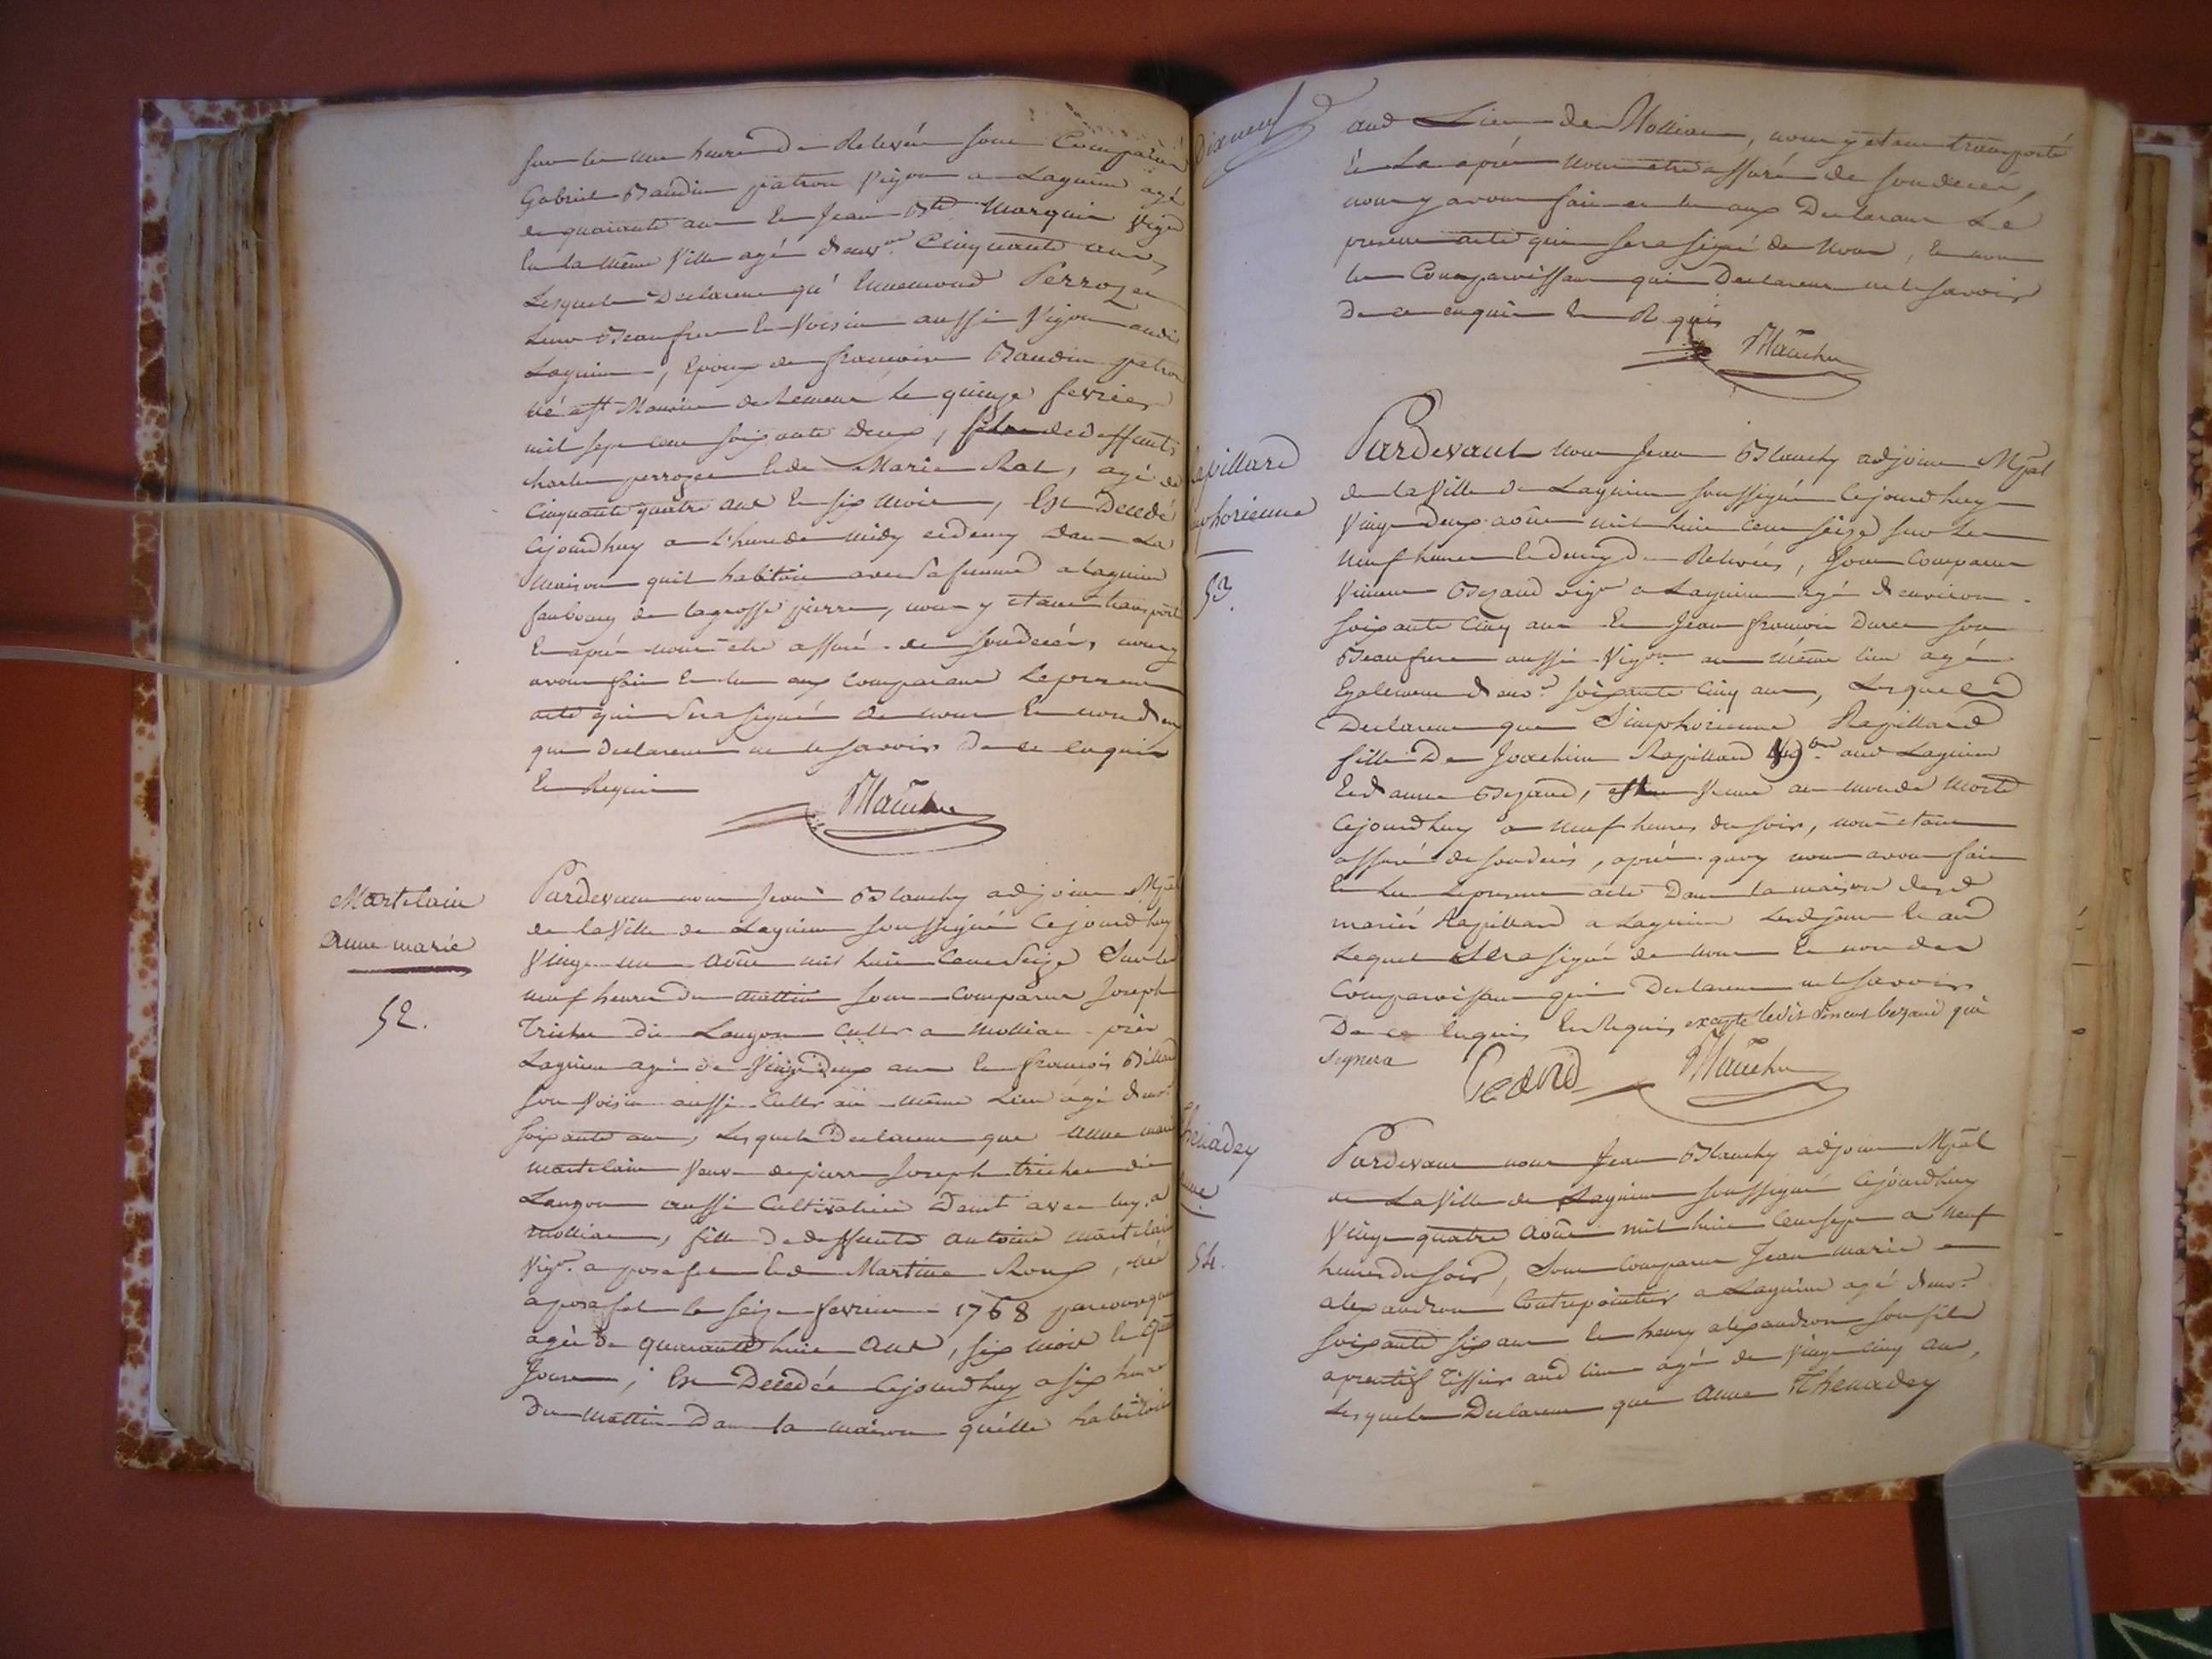 sur les une heure De Relevée sont Comparu
Gabriel Baudin patron Vigon a Lagnieu agé
de quarante ans Et Jean Bte Marquin Vign
En la même Ville agé denvon Cinquante ans,
Lesquels Declarent qu' Ennemond Perrozet
Leur Beaufrere Et Voisin aussi Vigon audi
Lagnieu, Epoux de francoise Baudin patron
né a St Maurice de Remens le quinze fevrier
mil sept cent soixante deux, fils de deffunts
charles perrozet Et de Marie Rat, agé de
Cinquante quatre ans Et six mois, Est Decedé
Cejourdhuy a L'heure de midy et demy dans La
maison quil habitoit avec sa femme a lagnieu
faubourg de la grosse pierre, nous y etant transporté
Et après nous etre assuré de son decès, nous y
avons fait Et lu aux comparans Le present
acte qui Sera signé de nous Et non deux
qui declarent ne le savoir De ce Enquis
Et Requis
Blanchy
Martelain
Anne marie
52.
Pardevant nous Jean Blanchy adjoint Mpal
de la Ville de Lagnieu soussigné Cejourd'huy
Vingt un Août mil huit Cent Seize Sur les
neuf heures Du mattin sont Comparus Joseph
Trichon dit Langon Cultr a Mollian près
Lagnieu agé de Vingt Deux ans Et francois Billard
son Voisin aussi Cultr au même Lieu agé denvon
soixante ans, Lesquels Declarent que Anne marie
martelain Veuve de pierre Joseph trichon dit
Langon aussi Cultivatrice Demt avec luy a
mollian, fille De deffunts Antoine martelain
Vign. a posafol Et de Martine Roux, née
a posafol le seize fevrier 1768 parconsequent
agée De quarante huit Ans, six mois Et
Jours, Est Decedée Cejourdhuy a six heures
Du Mattin Dans la maison quélle habitoit
Dixneuf
aud Lieu de Mollian, nous y etant transporté
Et La après nous etre assuré de son decès,
nous y avons fait et lu aux Declarans Le
present acte qui sera signé de Nous, Et non
les Comparoissans qui Declarent ne le savoir
De ce enquis Et Requis
Blanchy
apillard
mphorienne
53.
Pardevant nous Jean Blanchy adjoint Mpal
de la Ville de Lagnieu soussigné Cejourdhuy
Vingt Deux aôut mil huit cent seize sur les
Neuf heures Et demy De Relevées, sont Comparus
Vincent Bezand vign a Lagnieu agé denviron
soixante Cinq ans Et Jean francois Durez son
Beaufrere aussi Vigon au même lieu agé
Egalement denvon soixante Cinq ans, Lesquels
Declarent que Simphorienne Rapillard
fille De Joachim Rapillard Vign aud Lagnieu
Et d'anne Bezand, est Venue au monde Morte
Cejourdhuy a neuf heures du soir, nous etant
assuré de son decès, après quoy nous avons fait
Et Lu le present acte Dans la maison desd
mariés Rapillard a Lagnieu Lesd jour Et an
Lequel sera signé de nous Et non des
Comparoissans qui Declarent ne le savoir
De ce Enquis Et Requis, excepté ledit Vincent bezand qui
signera
Blanchy
henadey
anne
54.
Pardevant nous Jean Blanchy adjoint Mpal
de La Ville de Lagnieu soussigné Cejourdhuy
Vingt quatre Août mil huit Cent a Neuf
heures du soir, Sont Comparus Jean marie
alexandron Contrepointier a Lagnieu agé denvon
soixante six ans Et henry alexandron son fils
aprentif Tissier aud lieu agé de Vingt Cinq ans,
Lesquels Declarent que Anne Thenadey